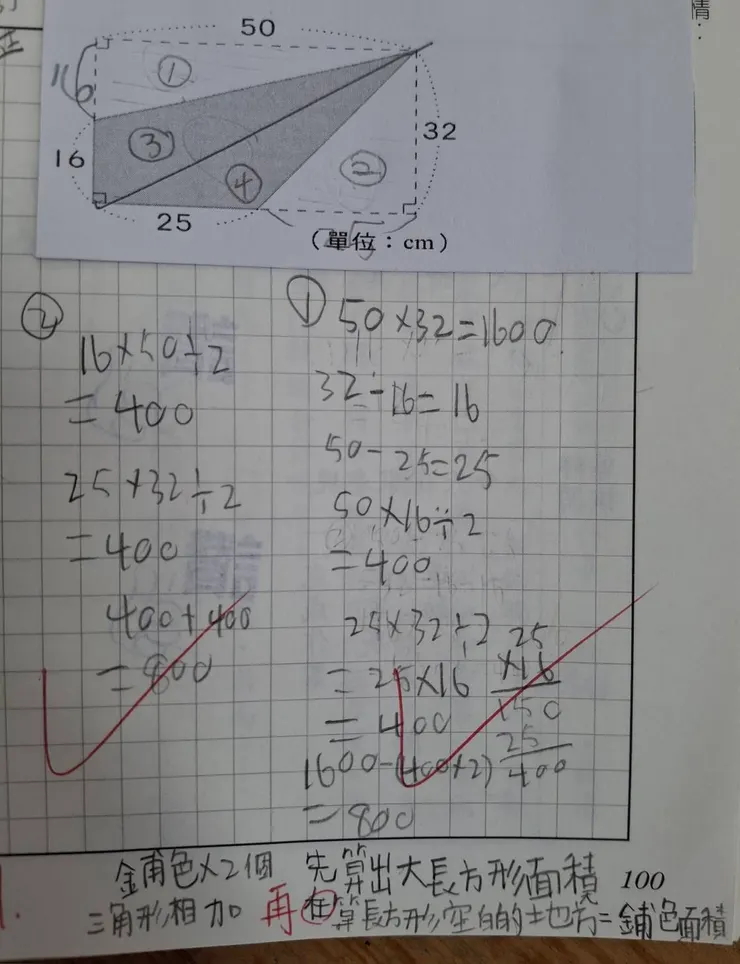 50
16
①
③
④
②
16
32
25
(單位：cm)
①
50×32=1600
32-16=16
50-25=25
50×16÷2
=400
25×32÷2
=25×16
=400
1600-(400×2)
=800
25
×16
150
25
400
②
16×50÷2
=400
25×32÷2
=400
400+400
=800
鋪色×2個
三角形相加
先算出大長方形面積
再在算長方形空白的土地方=鋪色面積
100
情：